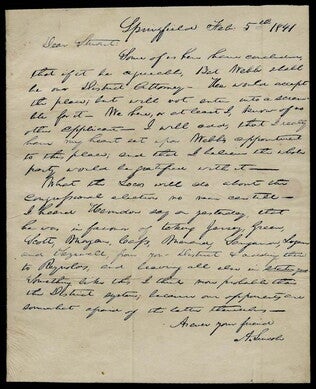 Springfield Feb. 5th 1841
Dear Stuart:
Some of us here have concluded
that if it be agreeable, Bat Webb shall
be our District Attorney - He would accept
the place; but will not enter into a scram-
ble for it - We have, or at least I, know of no
other applicant - I will add, that I really
have my heart set upon Webb's appointment
to this place; and that I believe the whole
party would be gratified with it -
What the Locos will do about the
Congressional election no man can tell -
I heard Herndon say on yesterday, that
he was in favour of taking Jersey, Green,
Scott, Morgan, Cass, Menard, Sangamon, Logan
and from your District & adding them
to Reynolds, and leaving all else in statu quo
Something like this I think more probable than
the District system, because our opponents are
somewhat afraid of the latter themselves -
As ever your friend
A. Lincoln